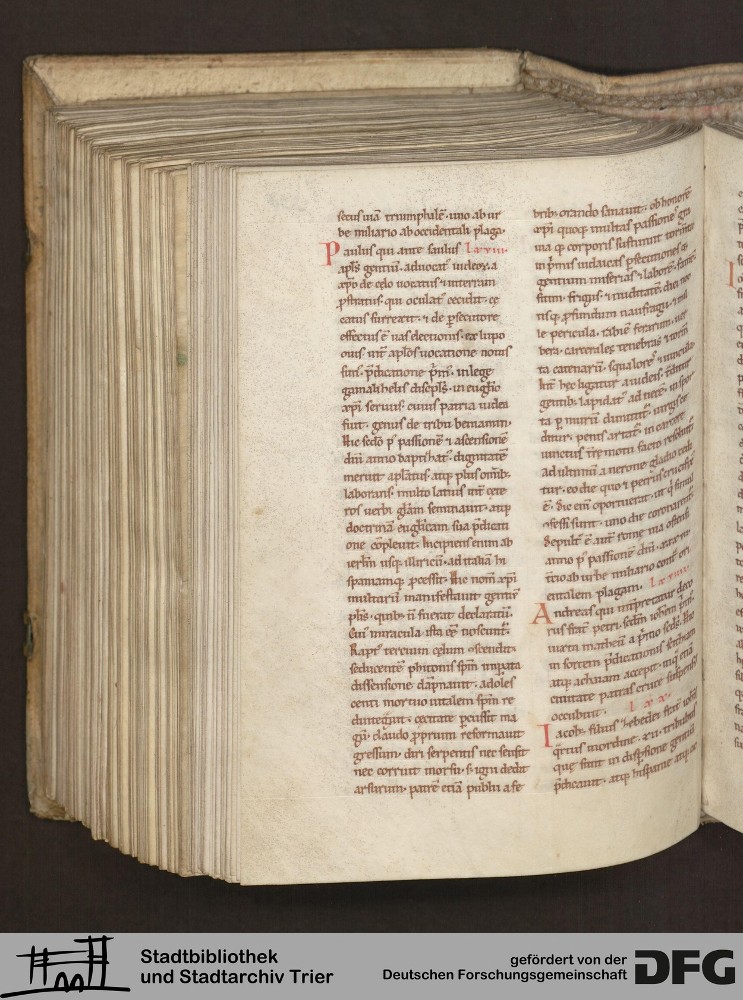 secus uiā triumphalē · uno ab ur
be miliario ab occidentali plaga ·
Paulus qui ante saulus lxviii·
apls gentiū · aduocat iudeoꝝ · a
xpo de cęlo uocatus ⁊ in terram
pstratus · qui oculat cecidit · cę
catus surrexit · ⁊ de psecutore
effectus ē uas electionis · ex lupo
ouis int aplos uocatione nouis
sim · pdicatione pm · in lege
gamalihelis discipls · in euglio
xpi seruus · cuius patria iudea
fuit · genus de tribu beniamin ·
hic scdo p passionē ⁊ ascensionē
dni anno baptizat · dignitatē
meruit aplatus · atqꝫ plus omībꝫ
laborans · multo latius int cęte
ros uerbi glām seminauit · atqꝫ
doctrinā euglicam sua pdicati
one cōpleuit · Incipiens enim ab
ierlm usqꝫ illiricū · ad italiā hi
spaniamqꝫ pcessit · hic nom xpi
multarū manifestauit gentiū
plis · quibꝫ n fuerat declaratū ·
Cui miracula ista ee noscunt ·
Rapt tercium cęlum ascendit ·
seducente phitonis spm
dissensione dāpnauit · adoles
centi mortuo uitalem spm re
duntegrat · cęcitate pcussit ma
gū · claudo pprium reformauit
gressum · diri serpentis nec sensit
nec corruit morsū · s igni dedit
arsurum · patrē etiā publii a fe
bribꝫ orando sanauit · ob honorē
xpi quoqꝫ multas passionē gra
uia qꝫ corporis sustinuit tormta
in pmis iudaicas psecutiones ac
gentium miserias ⁊ laborē · famē ·
sitim · frigus ⁊ nuditatē · diei noc
tisqꝫ pfundum naufragii · ⁊ mil
le pericula · rabiē ferarum · uer
bera · carcerales tenebras ⁊ torm
ta catenarū · squalorē ⁊ uincula ·
hic ligatur a iudeis · tdit
gentibꝫ · lapidat ad necē · in spor
ta p murū dimittit · uirgis ce
ditur · penis artat · in carcere
uinctus tre motu facto resoluit ·
ad ultimū a nerone gladio cedi
tur · eo die quo ⁊ petrus crucifix
ē · die enī oportuerat · ut q simul
cfessi sunt · uno die coronarent ·
depult ē aut rome uia ostensi
anno p passionē dni ·
ttio ab urbe miliario cont ori
entalem plagam · lxviiii
Andreas qui interpretatur deco
rus frat petri · scdm iohem pm ·
iuxta matheū a pmo scds · hic
in sortem pdicationis scithiam
atqꝫ achaiam accepit · in q etiā
ciuitate patras cruce suspensus
occubuit · lxx
Iacobꝫ filius zebedei frat iohis
qrtus in ordine · xii tribubus
quę sunt in dispsione gentiū
pdicauit · atqꝫ hispanie atqꝫ oc
Stadtbibliothek
und Stadtarchiv Trier
gefördert von der
Deutschen Forschungsgemeinschaft
DFG